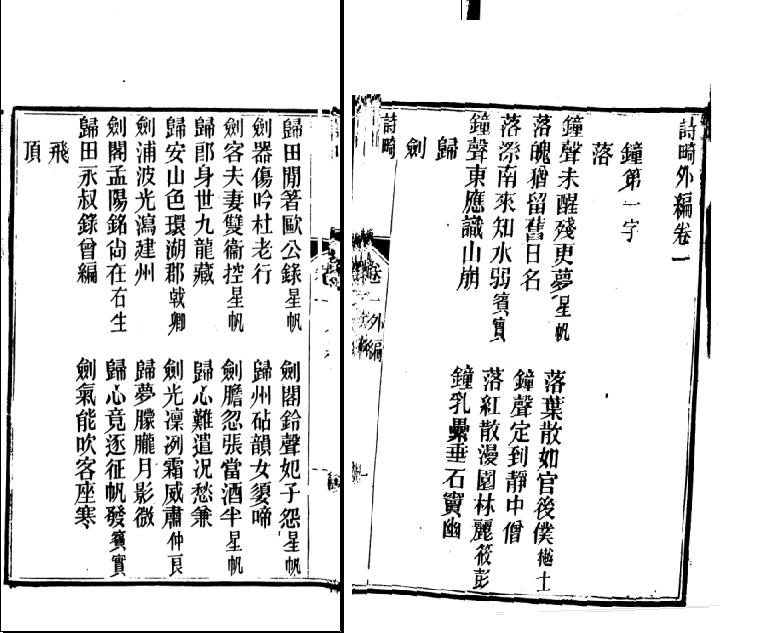 詩畸外編卷一
鐘第一字
落
鐘聲未醒殘更夢星帆　落葉散如官後僕樾士
落魄猶留舊日名　鐘聲定到靜中僧
落漈南來知水弱篔實　落紅散漫園林麗筱彭
鐘聲東應識山崩　鐘乳纍垂石竇幽
歸
劍
詩畸
卷一外編
歸田閒著歐公錄星帆　劍閣鈴聲妃子怨星帆
劍器傷吟杜老行　歸州砧韻女嬃啼
劍客夫妻雙衞控星帆　劍膽忽張當酒半星帆
歸郎身世九龍藏　歸心難遣况愁兼
歸安山色環湖郡戟卿　劍光凜冽霜威肅仲良
劍浦波光瀉建州　歸夢朦朧月影微
劍閣孟陽銘尙在右生　歸心竟逐征帆發篔實
歸田永叔錄曾編　劍氣能吹客座寒
飛
頂